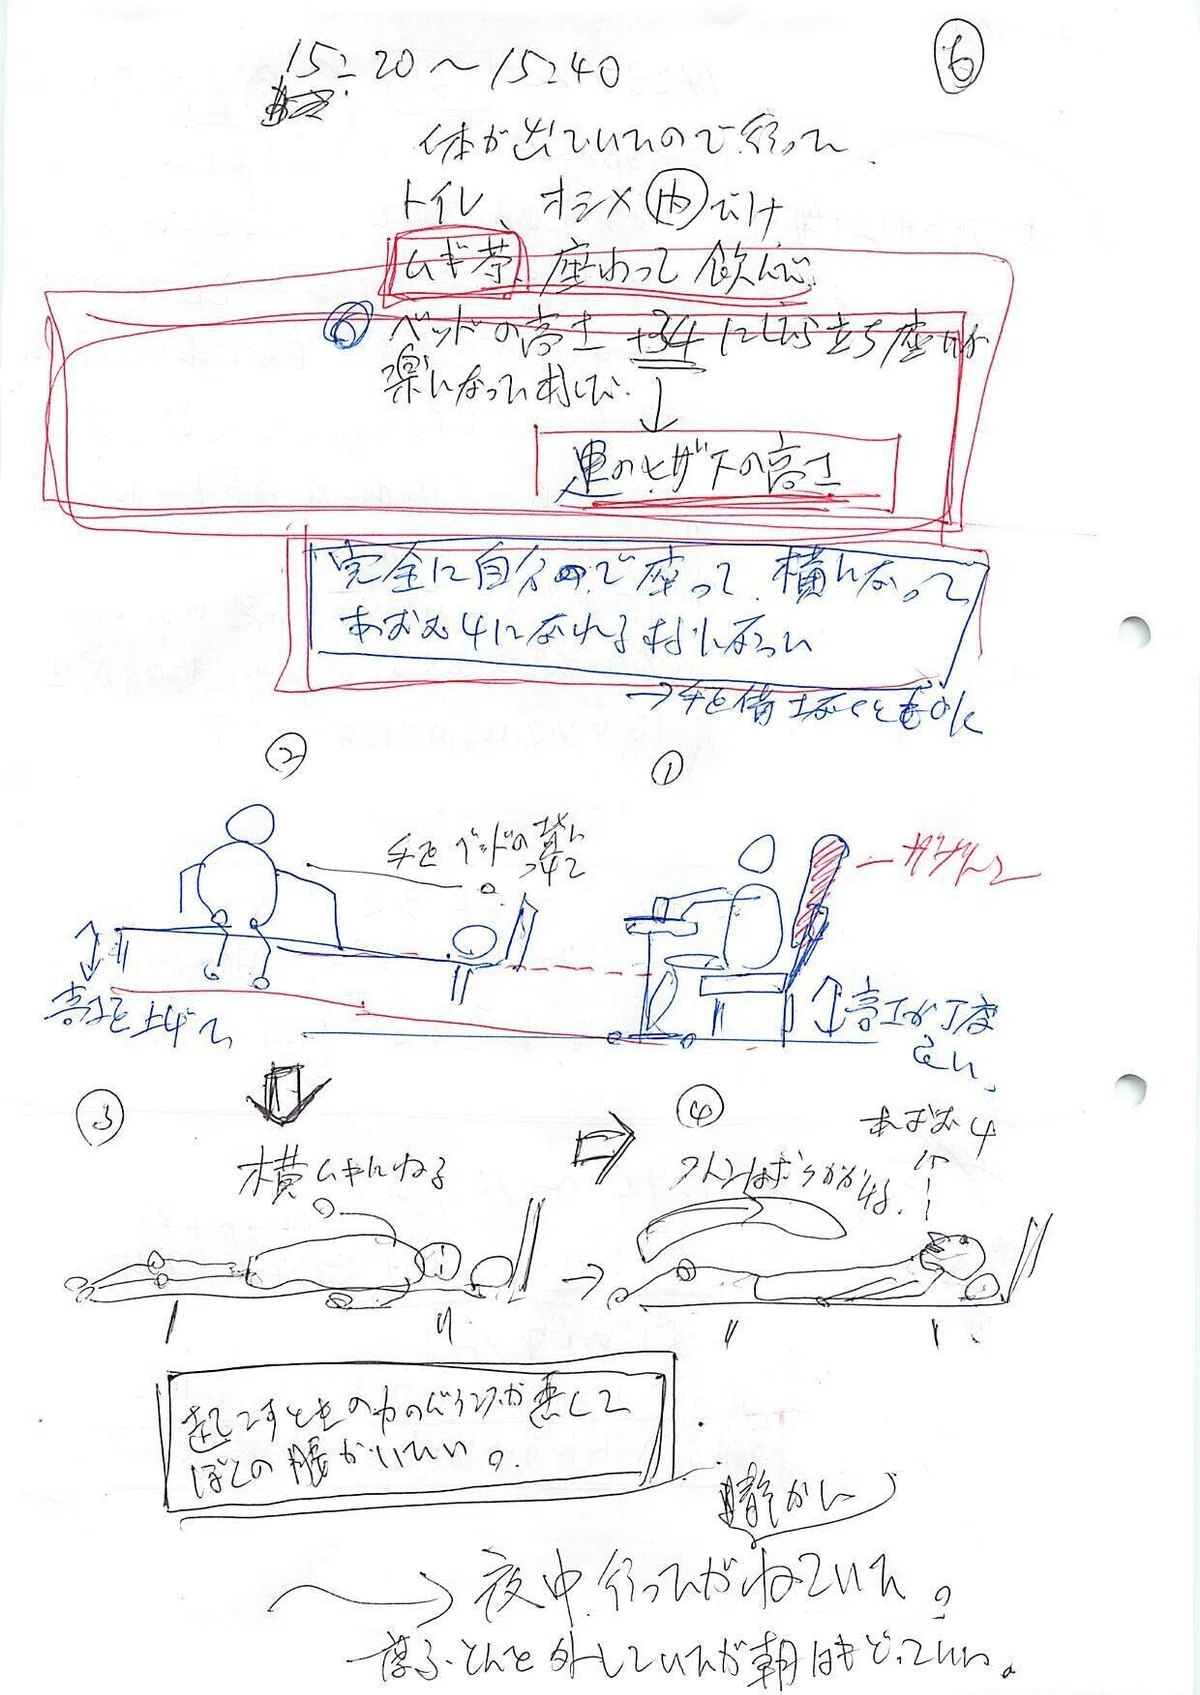 ⑥
15:20～15:40
体が出ていたので行って
トイレ オシメ㊥だけ
ムギ茶、座わって飲んだ
⑥ ベッドの高さ +34にしたら立ち座りが
楽になって
↓
足のヒザ下の高さ
完全に自分で座って、横になって
あおむ4になれる様になった
→手を借さなくとも
② ①
手をベッドの
高さを上げて
高さが丁度
良い。
③ ④
横ムキにねる
あおむ4
フトンはぼくがかける.
起こすときの力の が悪くて
ぼくの腰がいたい。
静かに
→夜中行ったがねていた。
ふとんを外していたが朝はもどっていた。